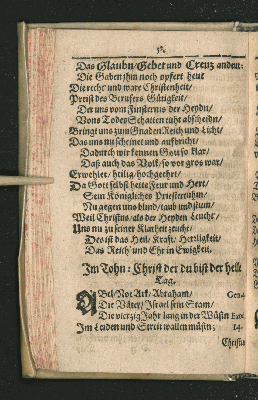 Das Glaubn/Gebet und Creuz andeut:
Die Gaben ihm noch opfert heut
Die recht und ware Christenheit/
Preist des Berufers Gütigkeit/
Der uns vom Finsternis der Heydn/
Vons Todes Schatten tuht abscheidn/
Bringt uns zum Gnaden Reich und Licht/
Das uns nu scheinet und aufbricht/
Dadurch wir kennen Gott so klar/
Daß auch das Volk/so vor gros war/
Erwehlet/heilig/hochgeehrt/
Da Gott selbst hette Feur und Hert/
Sein Königliches Priestertuhm/
Nu gegen uns blind/taub und stum/
Weil Christus/als der Heyden Leucht/
Uns nu zu seiner Klarheit zeucht/
Des ist das Heil/Kraft/Herrligkeit/
Das Reich und Ehr in Ewigkeit.
Im Tohn: Christ der du bist der helle
Tag.
ABel/Noe Ark/Abraham/ Gen.
Die Väter/Israel sein Stam/
Die vierzig Jahr lang in der Wüstn Exo.
Im Leiden und Streit wallen müstn; 14.
Christus